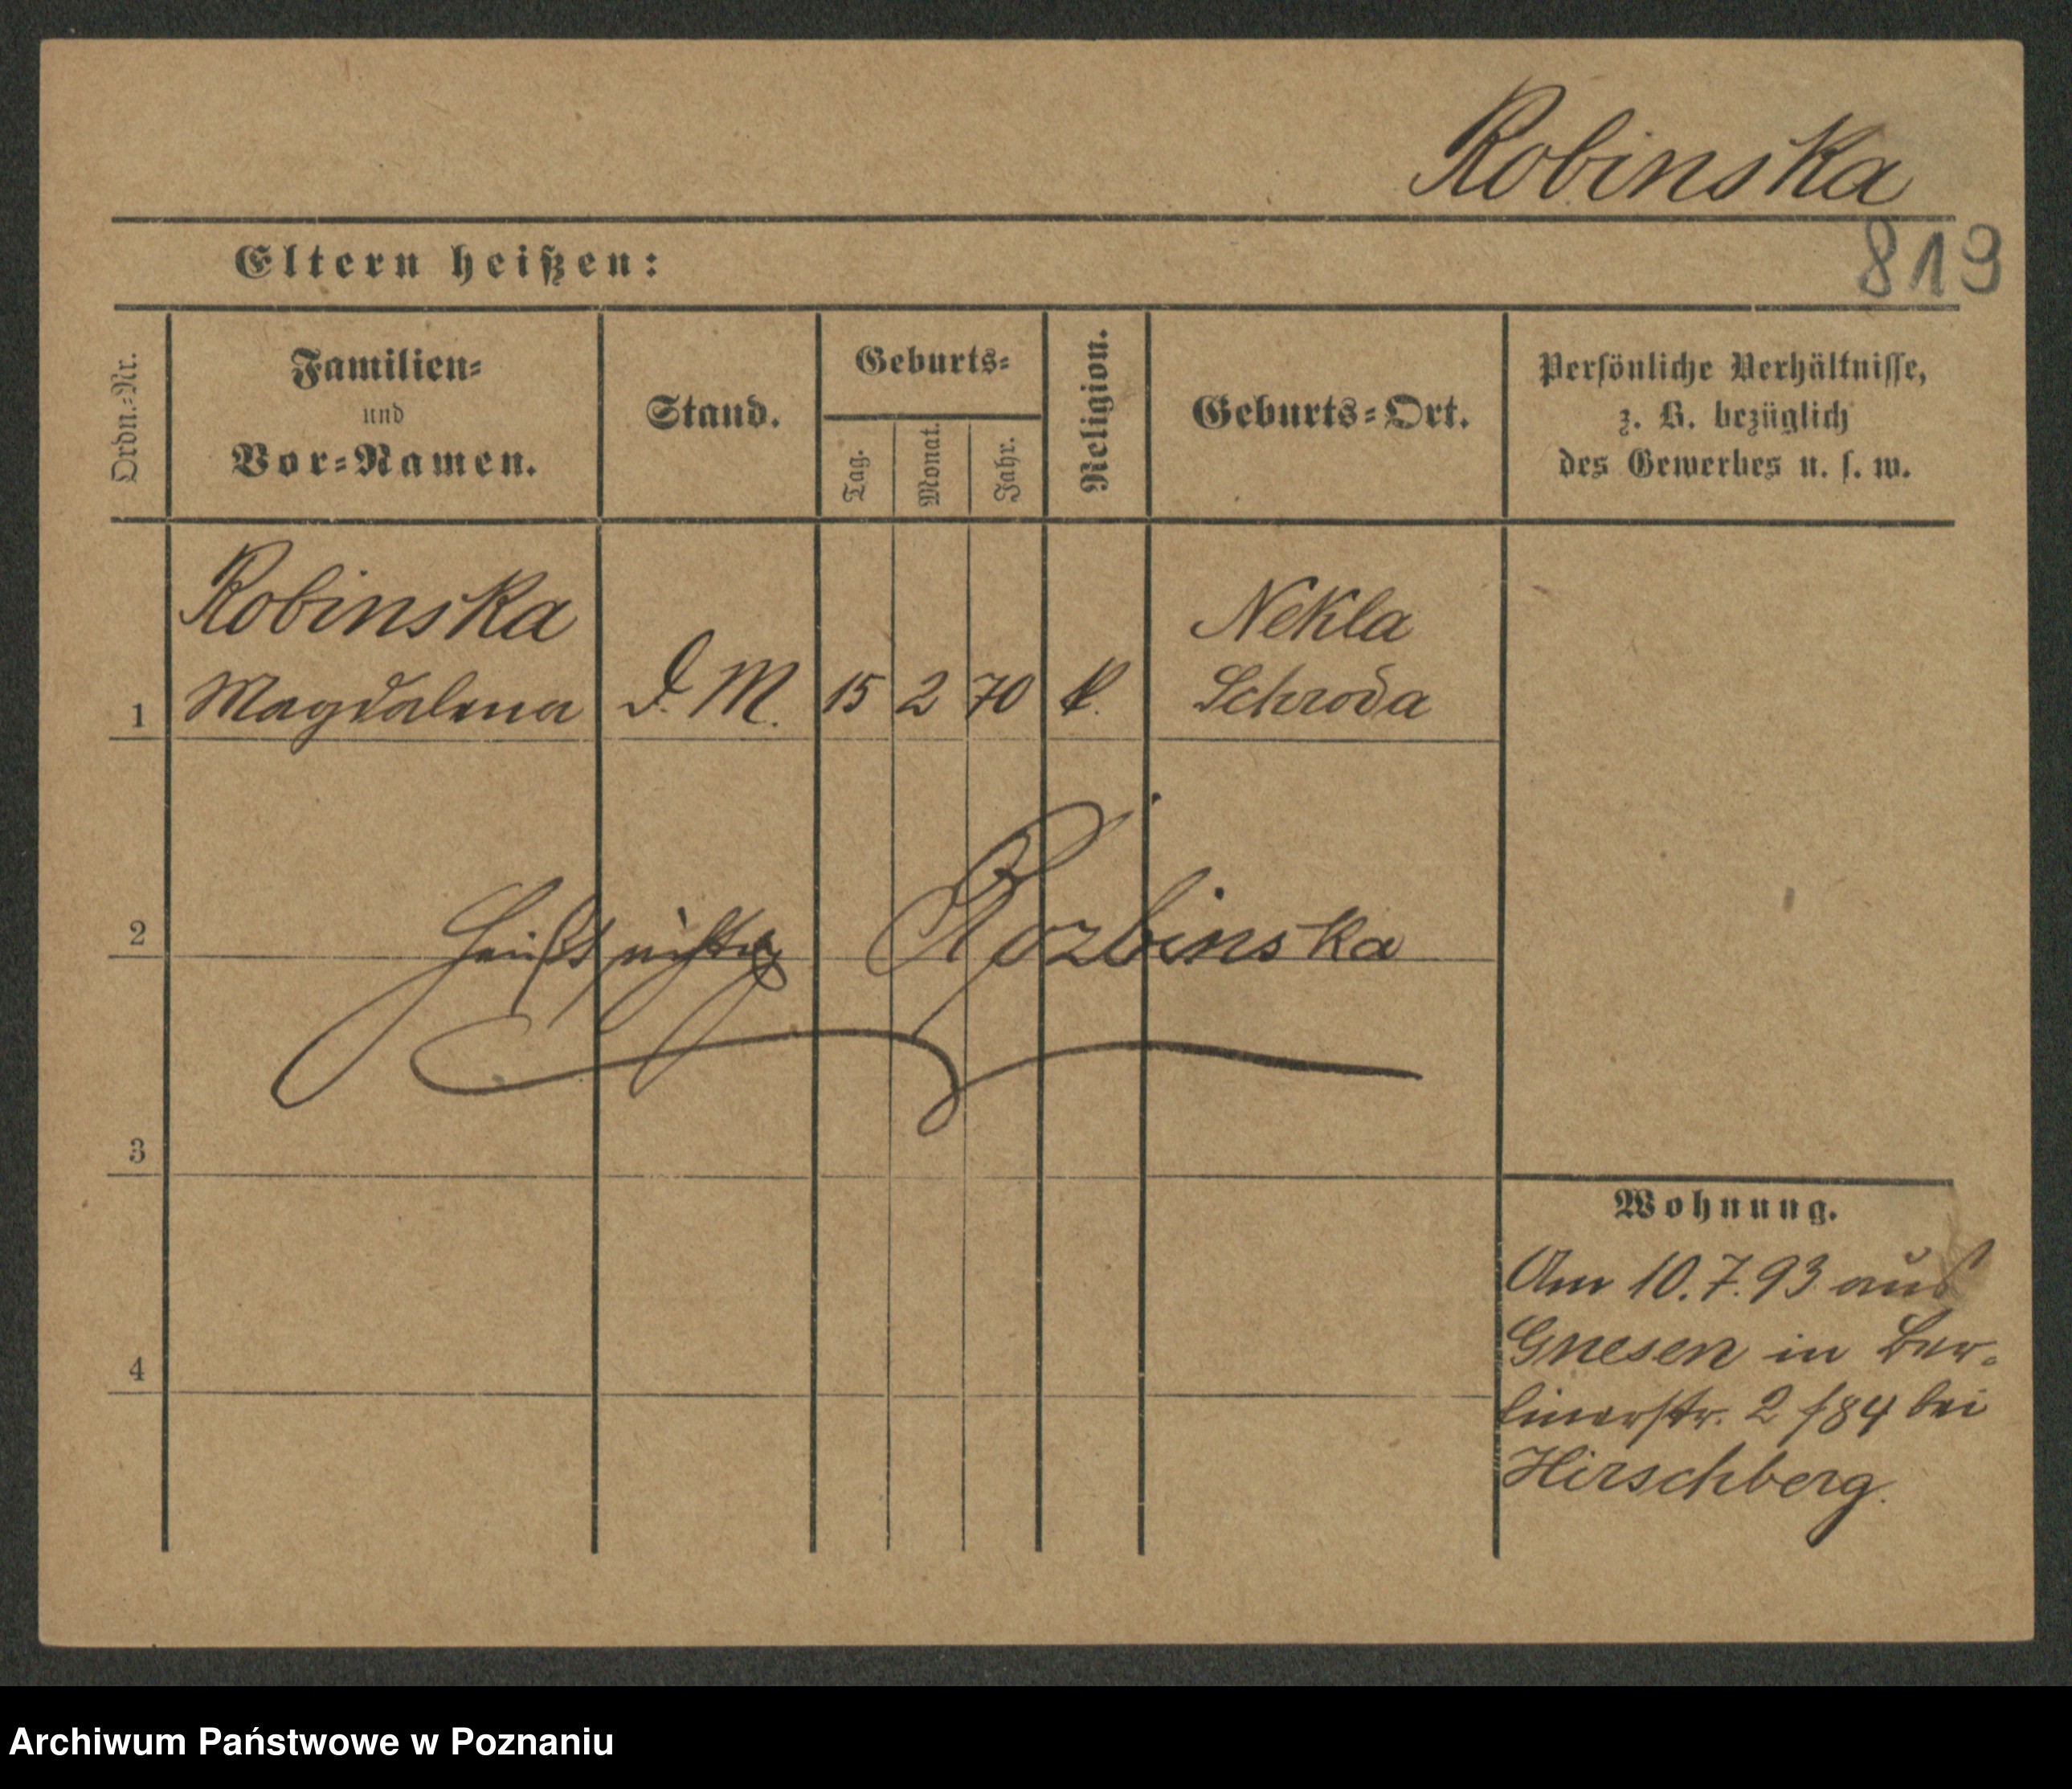 Robinska
819
Eltern heißen:
Ordn.-Nr.
Familien-
und
Vor-Namen.
Stand.
Geburts-
Tag.
Monat.
Jahr.
Religion.
Geburts-Ort.
Persönliche Verhältnisse,
z. B. bezüglich
des Gewerbes u. s. w.
Robinska
Magdalena
1
D. M.
15
2
70
k.
Nekla
Schroda
2
heißt richtig Rozbinska
3
Wohnung.
Am 10.7.93 aus
Gnesen in Ber-
linerstr. 2 f84 bei
Hirschberg.
4
Archiwum Państwowe w Poznaniu